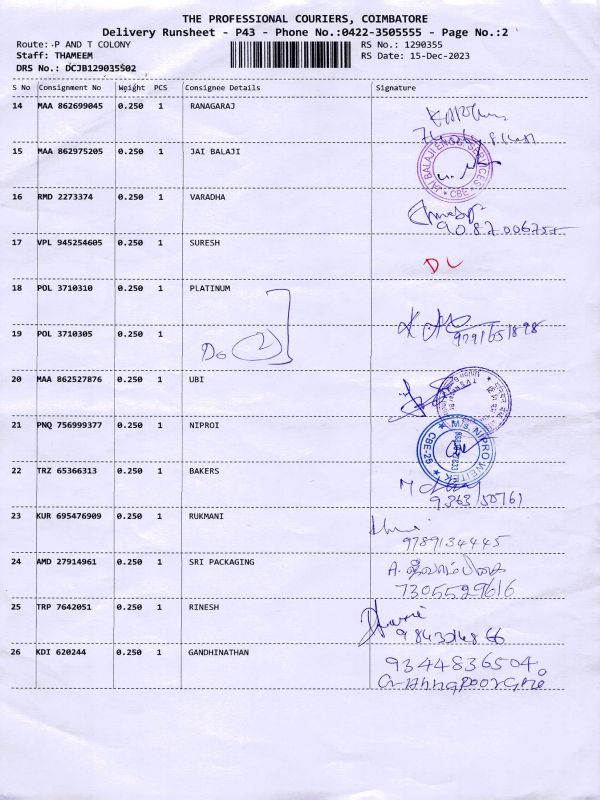 THE PROFESSIONAL COURIERS, COIMBATORE
Delivery Runsheet - P43 - Phone No.:0422-3505555 - Page No.:2
Route: P AND T COLONY RS No.: 1290355
Staff: THAMEEM RS Date: 15-Dec-2023
DRS No.: DCJB129035S02
S No Consignment No Weight PCS Consignee Details Signature
14 MAA 862699045 0.250 1 RANAGARAJ
15 MAA 862975205 0.250 1 JAI BALAJI
JAI BALAJI ENGG SERVICES * CBE *
16 RMD 2273374 0.250 1 VARADHA
17 VPL 945254605 0.250 1 SURESH
DL
18 POL 3710310 0.250 1 PLATINUM
19 POL 3710305 0.250 1
Do (2)
9791651898
20 MAA 862527876 0.250 1 UBI
21 PNQ 756999377 0.250 1 NIPROI
M/s. NIPRO WEITEK
CBE-26
22 TRZ 65366313 0.250 1 BAKERS
9363150761
23 KUR 695476909 0.250 1 RUKMANI
9789134445
24 AMD 27914961 0.250 1 SRI PACKAGING
7305529616
25 TRP 7642051 0.250 1 RINESH
26 KDI 620244 0.250 1 GANDHINATHAN
9344836504